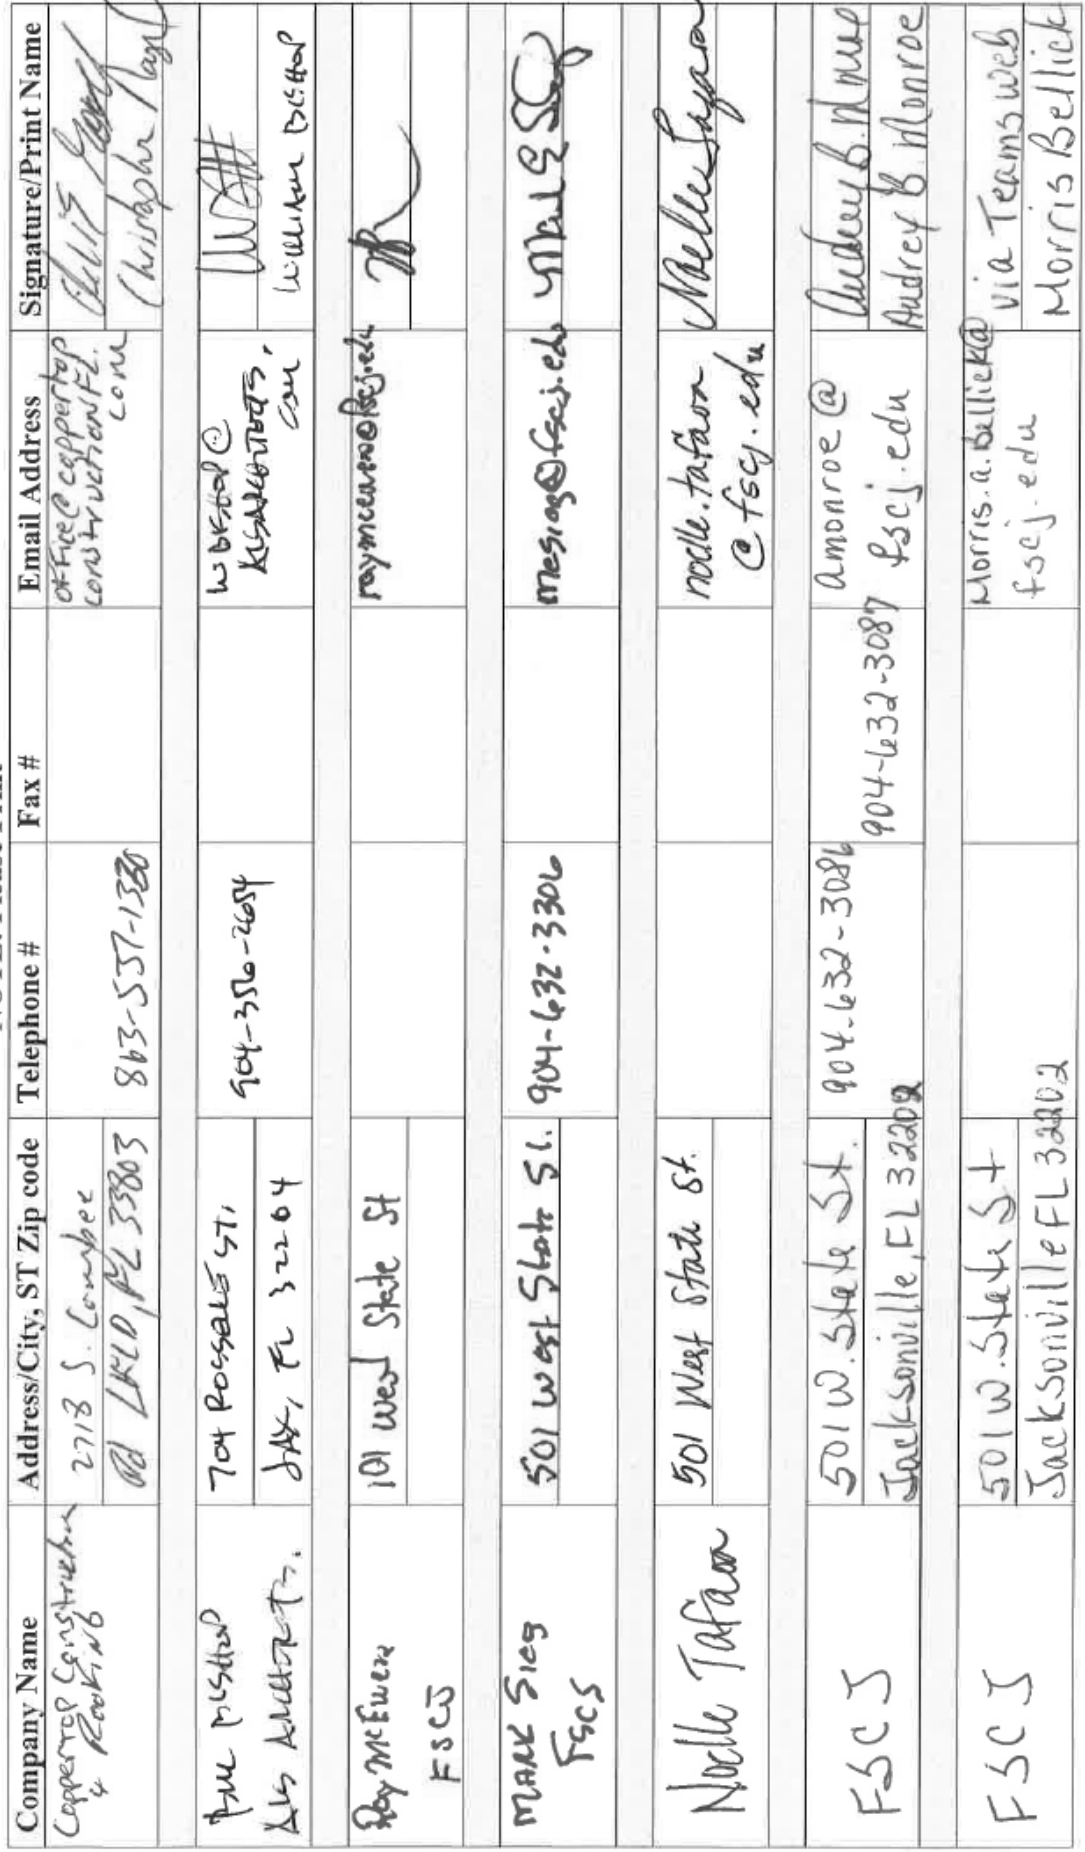 Company Name
Address/City, ST Zip code
Telephone #
Fax #
Email Address
Signature/Print Name
Coppertop Construction
& Roofing
2713 S. Combee
Rd LKLD, FL 33803
863-537-1330
office@coppertop
constructionFL.
com
Bill Bishop
704 Rosselle St.
Jax, FL 32204
904-356-2654
William Bishop
Ray McEwen
FSCJ
101 West State St
MARK Sieg
FSCJ
501 West State St.
904-632-3306
mesieg@fscj.edu
Noelle Tafaon
501 West State St.
noelle.tafaon
@fscj.edu
FSCJ
501 W. State St.
Jacksonville, FL 32202
904-632-3086
904-632-3087
amonroe@
fscj.edu
Audrey B. Monroe
Audrey B. Monroe
FSCJ
501 W. State St
Jacksonville FL 32202
Morris.a.bellick@
fscj.edu
via Teams web
Morris Bellick